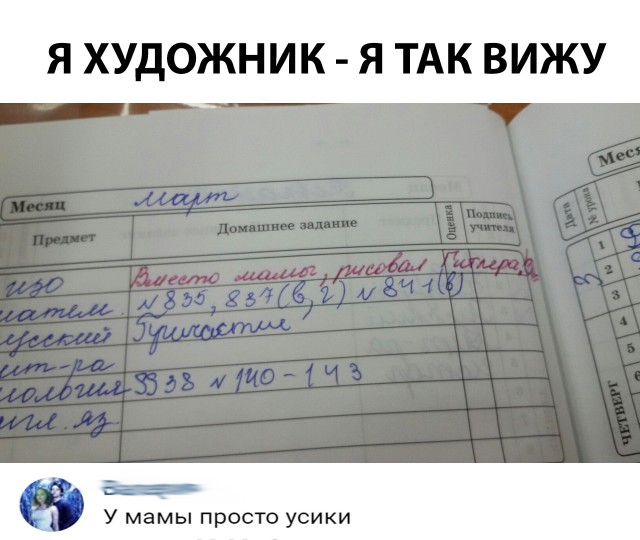 Я ХУДОЖНИК - Я ТАК ВИЖУ
Месяц март
Предмет Домашнее задание Оценка Подпись учителя
изо Вместо мамы, рисовал Гитлера,
матем. №835, 837(в,г) №841(в)
русский Причастие
лит-ра
биология §§38 №140-143
англ. яз.
Меся
Дата № урока
3
1
2
3
4
5
6
ЧЕТВЕРГ
У мамы просто усики